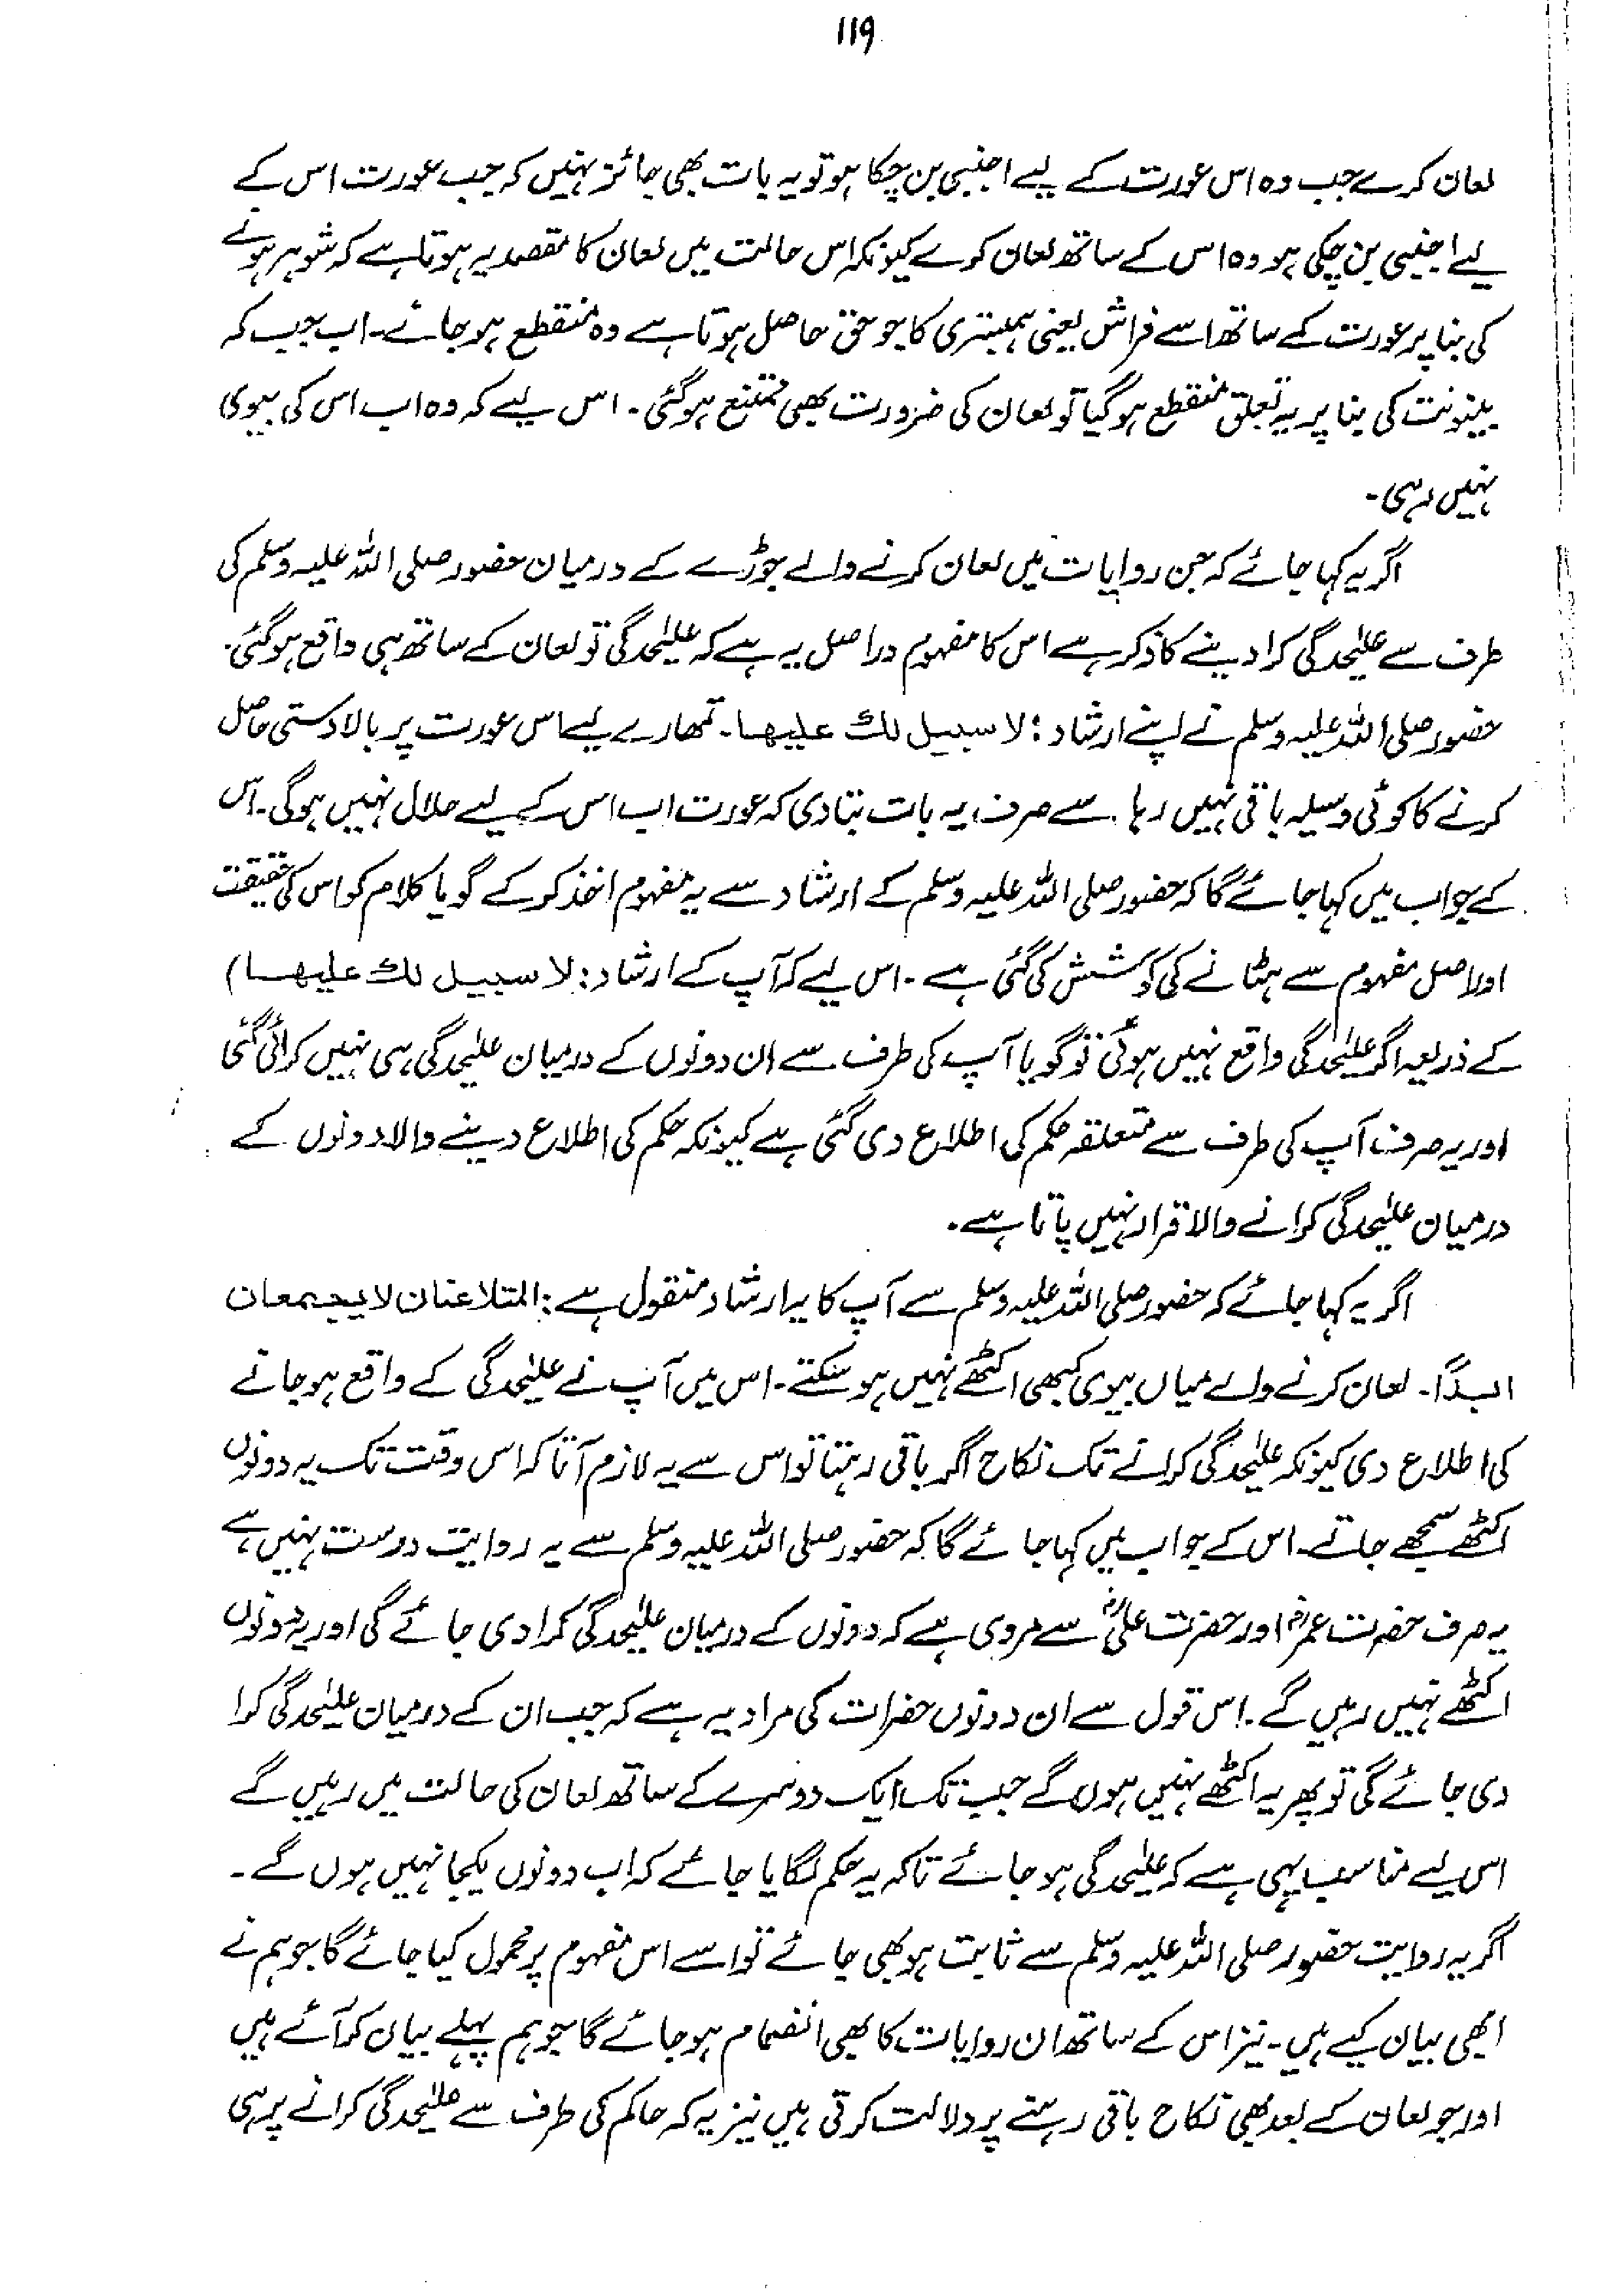 ۱۱۹
لعان کرے جب وہ اس عورت کے لیے اجنبی بن چکا ہو تو یہ بات بھی جائز نہیں کہ جب عورت اس کے
لیے اجنبی بن چکی ہو وہ اس کے ساتھ لعان کرے کیونکہ اس حالت میں لعان کا مقصد یہ ہوتا ہے کہ شوہر ہونے
کی بنا پر عورت کے ساتھ اسے فراش یعنی ہمبستری کا جو حق حاصل ہوتا ہے وہ منقطع ہو جائے۔ اب جب کہ
بینونت کی بنا پر یہ تعلق منقطع ہو گیا تو لعان کی ضرورت بھی ممتنع ہو گئی۔ اس لیے کہ وہ اب اس کی بیوی
نہیں رہی۔
اگر یہ کہا جائے کہ جن روایات میں لعان کرنے والے جوڑے کے درمیان حضور صلی اللہ علیہ وسلم کی
طرف سے علیٰحدگی کرا دینے کا ذکر ہے اس کا مفہوم دراصل یہ ہے کہ علیٰحدگی تو لعان کے ساتھ ہی واقع ہو گئی۔
حضور صلی اللہ علیہ وسلم نے اپنے ارشاد: لا سبیل لك علیھا۔ تمھارے لیے اس عورت پر بالادستی حاصل
کرنے کا کوئی وسیلہ باقی نہیں رہا۔ سے صرف یہ بات بتا دی کہ عورت اب اس کے لیے حلال نہیں ہوگی۔ اس
کے جواب میں کہا جائے گا کہ حضور صلی اللہ علیہ وسلم کے ارشاد سے یہ مفہوم اخذ کر کے گویا کلام کو اس کی حقیقت
اور اصل مفہوم سے ہٹانے کی کوشش کی گئی ہے۔ اس لیے کہ آپ کے ارشاد: لا سبیل لك علیھا)
کے ذریعہ اگر علیٰحدگی واقع نہیں ہوئی تو گویا آپ کی طرف سے ان دونوں کے درمیان علیٰحدگی ہی نہیں کرائی گئی
اور یہ صرف آپ کی طرف سے متعلقہ حکم کی اطلاع دی گئی ہے کیونکہ حکم کی اطلاع دینے والا دونوں کے
درمیان علیٰحدگی کرانے والا قرار نہیں پاتا ہے۔
اگر یہ کہا جائے کہ حضور صلی اللہ علیہ وسلم سے آپ کا یہ ارشاد منقول ہے: المتلاعنان لا یجمعان
ابدًا۔ لعان کرنے والے میاں بیوی کبھی اکٹھے نہیں ہو سکتے۔ اس میں آپ نے علیٰحدگی کے واقع ہو جانے
کی اطلاع دی کیونکہ علیٰحدگی کرانے تک نکاح اگر باقی رہتا تو اس سے یہ لازم آتا کہ اس وقت تک یہ دونوں
اکٹھے سمجھے جاتے۔ اس کے جواب میں کہا جائے گا کہ حضور صلی اللہ علیہ وسلم سے یہ روایت درست نہیں ہے
یہ صرف حضرت عمرؓ اور حضرت علیؓ سے مروی ہے کہ دونوں کے درمیان علیٰحدگی کرا دی جائے گی اور یہ دونوں
اکٹھے نہیں رہیں گے۔ اس قول سے ان دونوں حضرات کی مراد یہ ہے کہ جب ان کے درمیان علیٰحدگی کرا
دی جائے گی تو پھر یہ اکٹھے نہیں ہوں گے جب تک ایک دوسرے کے ساتھ لعان کی حالت میں رہیں گے
اس لیے مناسب یہی ہے کہ علیٰحدگی ہو جائے تاکہ یہ حکم لگایا جائے کہ اب دونوں یکجا نہیں ہوں گے۔
اگر یہ روایت حضور صلی اللہ علیہ وسلم سے ثابت ہو بھی جائے تو اسے اس مفہوم پر محمول کیا جائے گا جو ہم نے
ابھی بیان کیے ہیں۔ نیز اس کے ساتھ ان روایات کا بھی انضمام ہو جائے گا جو ہم پہلے بیان کر آئے ہیں
اور جو لعان کے بعد بھی نکاح باقی رہنے پر دلالت کرتی ہیں نیز یہ کہ حاکم کی طرف سے علیٰحدگی کرانے پر ہی